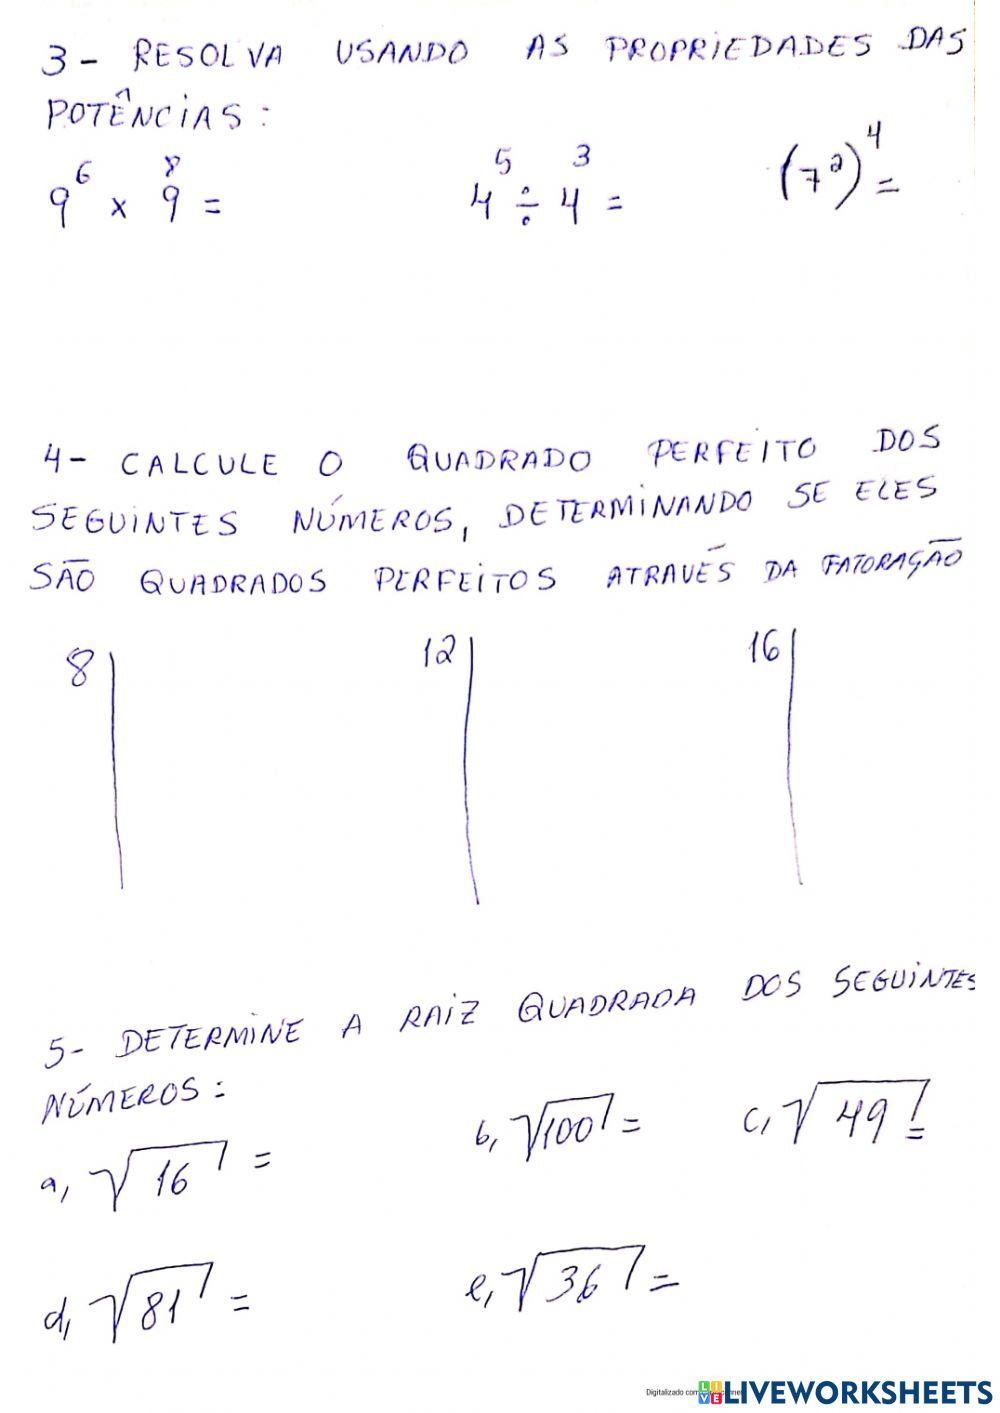 3- RESOLVA USANDO AS PROPRIEDADES DAS
POTÊNCIAS:
9⁶ x 9⁸ = 4⁵ ÷ 4³ = (7²)⁴ =
4- CALCULE O QUADRADO PERFEITO DOS
SEGUINTES NÚMEROS, DETERMINANDO SE ELES
SÃO QUADRADOS PERFEITOS ATRAVÉS DA FATORAÇÃO
8 12 16
5- DETERMINE A RAIZ QUADRADA DOS SEGUINTES
NÚMEROS:
a, √16 = b, √100 = c, √49 =
d, √81 = e, √36 =
Digitalizado com
LIVE LIVEWORKSHEETS